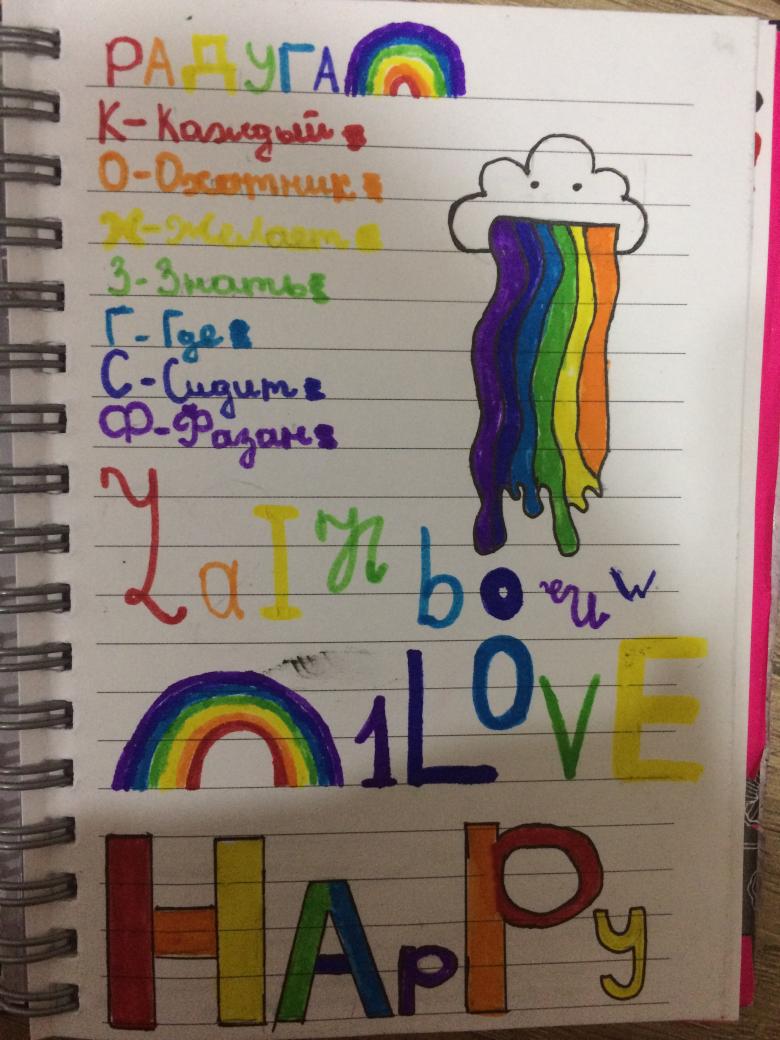 РАДУГА
К-Каждый
О-Охотник
Ж-Желает
З-Знать
Г-Где
С-Сидит
Ф-Фазан
1 LOVE
HAppy